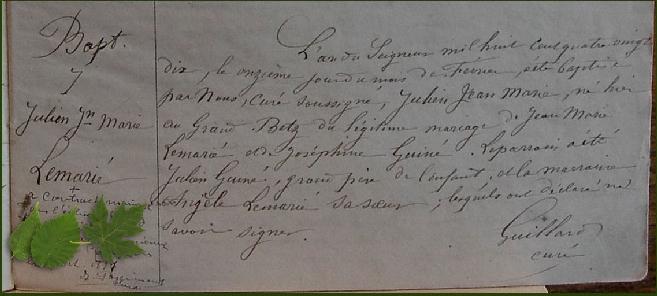 Bapt.
7
Julien Jn Marie
Lemarié
+
a contracté
L'an du Seigneur mil huit cent quatre vingt
dix, le onzième jour du mois de Février, a été baptisé
par Nous, curé soussigné, Julien Jean Marie, né hier
au Grand Betz du légitime mariage de Jean Marie
Lemarié et de Joséphine Guiné. Le parrain a été
Julien Guiné, grand père de l'enfant, et la marraine
Angèle Lemarié sa sœur, lesquels ont déclaré ne
savoir signer.
Guillard
curé